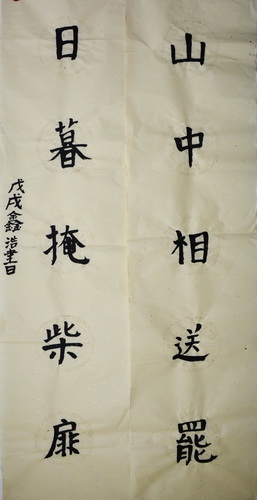 山中相送罷
日暮掩柴扉
戊戌鑫浩書